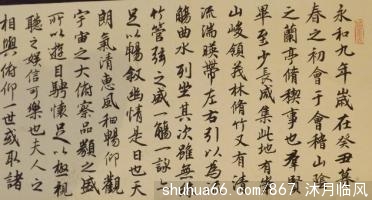 永和九年歲在癸丑暮
春之初會于會稽山陰
之蘭亭脩稧事也群賢
畢至少長咸集此地有
山峻領茂林脩竹又有清
流湍暎帶左右引以為流
觴曲水列坐其次雖無
竹管弦之盛一觴一詠
足以暢敘幽情是日也天
朗氣清惠風和暢仰觀
宇宙之大俯察品類之盛
所以遊目騁懷足以極視
聽之娛信可樂也夫人之
相與俯仰一世或取諸
shuhua66.com/867 沐月临风